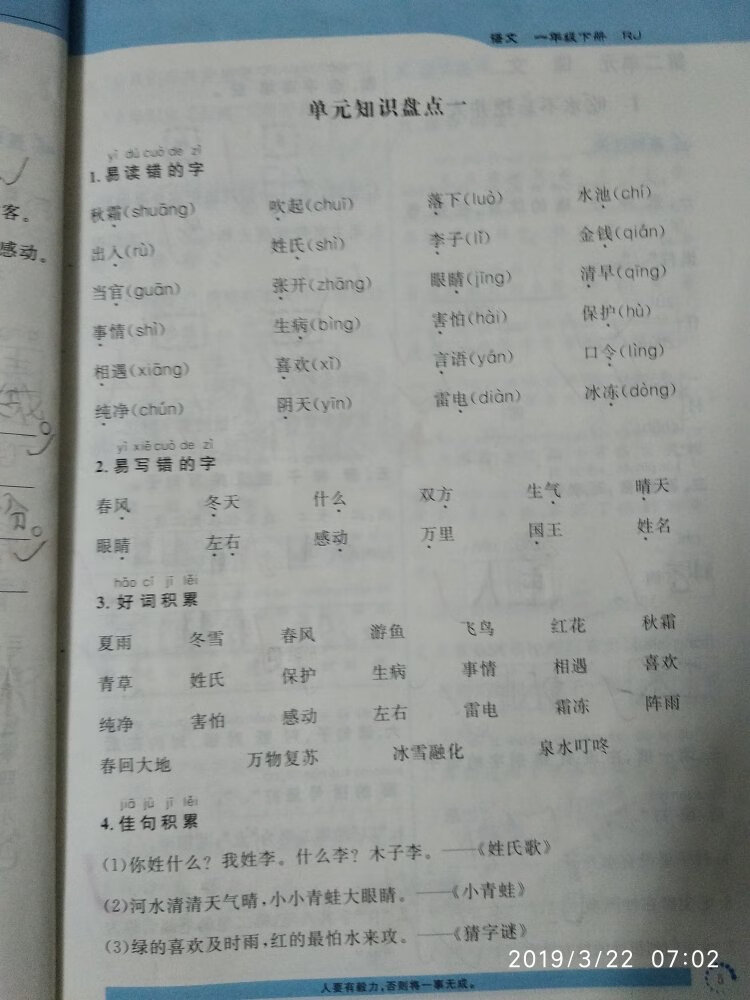 语文 一年级下册 RJ
单元知识盘点一
yì dú cuò de zì
1.易读错的字
秋霜(shuāng) 吹起(chuī) 落下(luò) 水池(chí)
出入(rù) 姓氏(shì) 李子(lǐ) 金钱(qián)
当官(guān) 张开(zhāng) 眼睛(jīng) 清早(qīng)
事情(shì) 生病(bìng) 害怕(hài) 保护(hù)
相遇(xiāng) 喜欢(xǐ) 言语(yán) 口令(lìng)
纯净(chún) 阴天(yīn) 雷电(diàn) 冰冻(dòng)
yì xiě cuò de zì
2.易写错的字
春风 冬天 什么 双方 生气 晴天
眼睛 左右 感动 万里 国王 姓名
hǎo cí jī lěi
3.好词积累
夏雨 冬雪 春风 游鱼 飞鸟 红花 秋霜
青草 姓氏 保护 生病 事情 相遇 喜欢
纯净 害怕 感动 左右 雷电 霜冻 阵雨
春回大地 万物复苏 冰雪融化 泉水叮咚
jiā jù jī lěi
4.佳句积累
(1)你姓什么?我姓李。什么李?木子李。——《姓氏歌》
(2)河水清清天气晴,小小青蛙大眼睛。——《小青蛙》
(3)绿的喜欢及时雨,红的最怕水来攻。——《猜字谜》
人要有毅力,否则将一事无成。
5
2019/3/22 07:02
客。
感动。